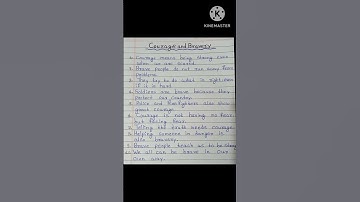 KINEMASTER
Courage and Bravery
1. Courage means being strong even
when we are scared.
2. Brave people do not run away from
problems.
3. They try to do what is right even
if it is hard.
4. Soldiers are brave because they
protect our country.
5. Police and firefighters also show
great courage.
6. Courage is not having no fear
but facing fear.
7. Telling the truth needs courage.
8. Helping someone in danger is
also bravery.
9. Brave people teach us to be strong
10. We all can be brave in our
own way.